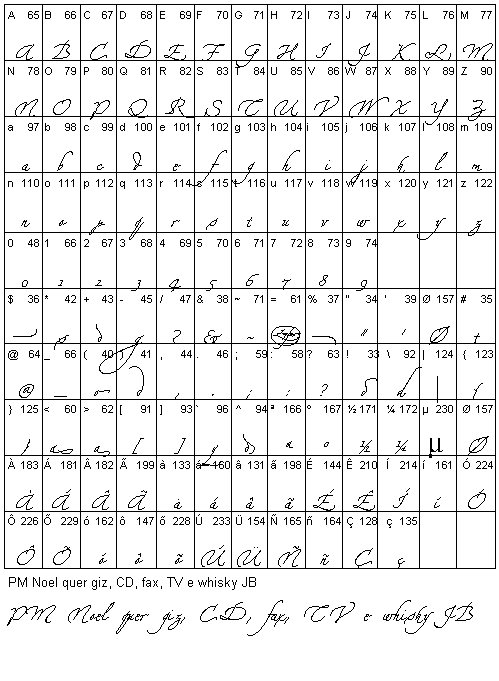 A 65 B 66 C 67 D 68 E 69 F 70 G 71 H 72 I 73 J 74 K 75 L 76 M 77
A B C D E F G H I J K L M
N 78 O 79 P 80 Q 81 R 82 S 83 T 84 U 85 V 86 W 87 X 88 Y 89 Z 90
N O P Q R S T U V W X Y Z
a 97 b 98 c 99 d 100 e 101 f 102 g 103 h 104 i 105 j 106 k 107 l 108 m 109
a b c d e f g h i j k l m
n 110 o 111 p 112 q 113 r 114 s 115 t 116 u 117 v 118 w 119 x 120 y 121 z 122
n o p q r s t u v w x y z
0 48 1 66 2 67 3 68 4 69 5 70 6 71 7 72 8 73 9 74
0 1 2 3 4 5 6 7 8 9
$ 36 * 42 + 43 - 45 / 47 & 38 ~ 71 = 61 % 37 " 34 ' 39 Ø 157 # 35
& ~ " ' Ø
@ 64 _ 66 ( 40 ) 41 , 44 . 46 ; 59 : 58 ? 63 ! 33 \ 92 | 124 { 123
@ _ , . ; : ? |
} 125 < 60 > 62 [ 91 ] 93 ` 96 ^ 94 ª 166 º 167 ½ 171 ¼ 172 µ 230 Ø 157
[ ] ½ µ Ø
À 183 Á 181 Â 182 Ã 199 à 133 á 160 â 131 ã 198 É 144 Ê 210 Í 214 í 161 Ó 224
À Á Â Ã à á â ã É Ê Í í Ó
Ô 226 Õ 229 ó 162 ô 147 õ 228 Ú 233 Ü 154 Ñ 165 ñ 164 Ç 128 ç 135
Ô Õ ó ô õ Ú Ü Ñ ñ Ç ç
PM Noel quer giz, CD, fax, TV e whisky JB
PM Noel quer giz, CD, fax, TV e whisky JB